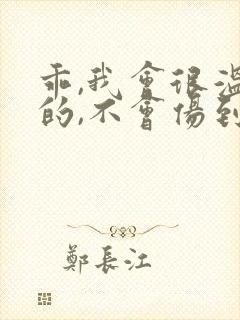 乖,我會很溫
的,不會傷到
鄭長江